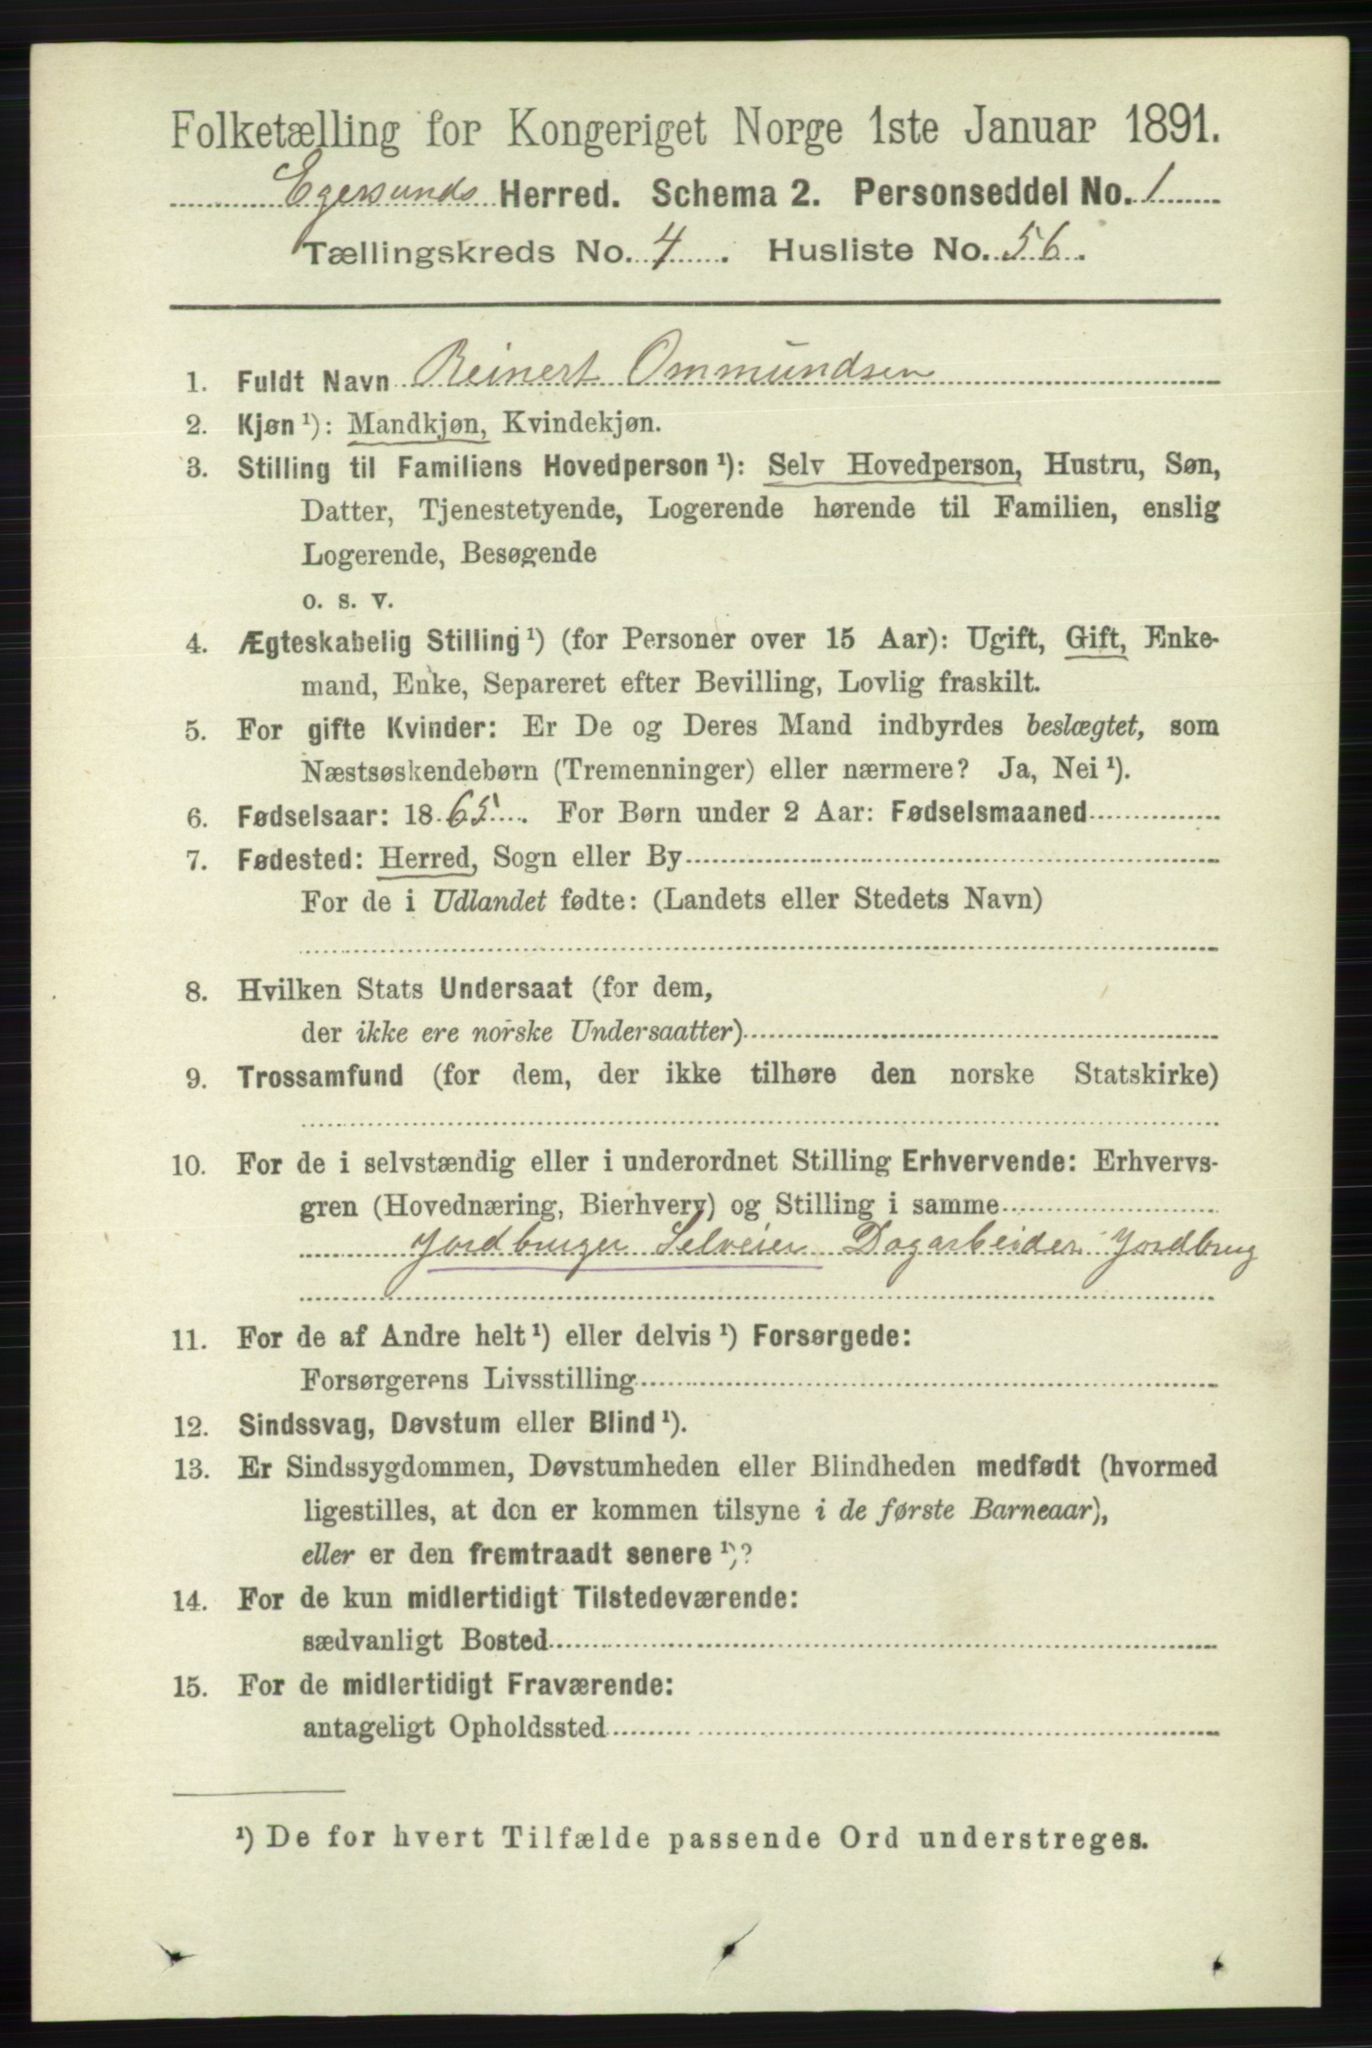 Folketælling for Kongeriget Norge 1ste Januar 1891.
Egersunds Herred. Schema 2. Personseddel No. 1
Tællingskreds No. 4. Husliste No. 56.
1. Fuldt Navn Reinert Ommundsen
2. Kjøn ¹): Mandkjøn, Kvindekjøn.
3. Stilling til Familiens Hovedperson ¹): Selv Hovedperson, Hustru, Søn,
Datter, Tjenestetyende, Logerende hørende til Familien, enslig
Logerende, Besøgende
o. s. v.
4. Ægteskabelig Stilling ¹) (for Personer over 15 Aar): Ugift, Gift, Enke-
mand, Enke, Separeret efter Bevilling, Lovlig fraskilt.
5. For gifte Kvinder: Er De og Deres Mand indbyrdes beslægtet, som
Næstsøskendebørn (Tremenninger) eller nærmere? Ja, Nei ¹).
6. Fødselsaar: 1865. For Børn under 2 Aar: Fødselsmaaned
7. Fødested: Herred, Sogn eller By
For de i Udlandet fødte: (Landets eller Stedets Navn)
8. Hvilken Stats Undersaat (for dem,
der ikke ere norske Undersaatter)
9. Trossamfund (for dem, der ikke tilhøre den norske Statskirke)
10. For de i selvstændig eller i underordnet Stilling Erhvervende: Erhvervs-
gren (Hovednæring, Bierhverv) og Stilling i samme
Jordbruger Selveier Dagarbeider Jordbrug
11. For de af Andre helt ¹) eller delvis ¹) Forsørgede:
Forsørgerens Livsstilling
12. Sindssvag, Døvstum eller Blind ¹).
13. Er Sindssygdommen, Døvstumheden eller Blindheden medfødt (hvormed
ligestilles, at den er kommen tilsyne i de første Barneaar),
eller er den fremtraadt senere ¹)?
14. For de kun midlertidigt Tilstedeværende:
sædvanligt Bosted
15. For de midlertidigt Fraværende:
antageligt Opholdssted
¹) De for hvert Tilfælde passende Ord understreges.